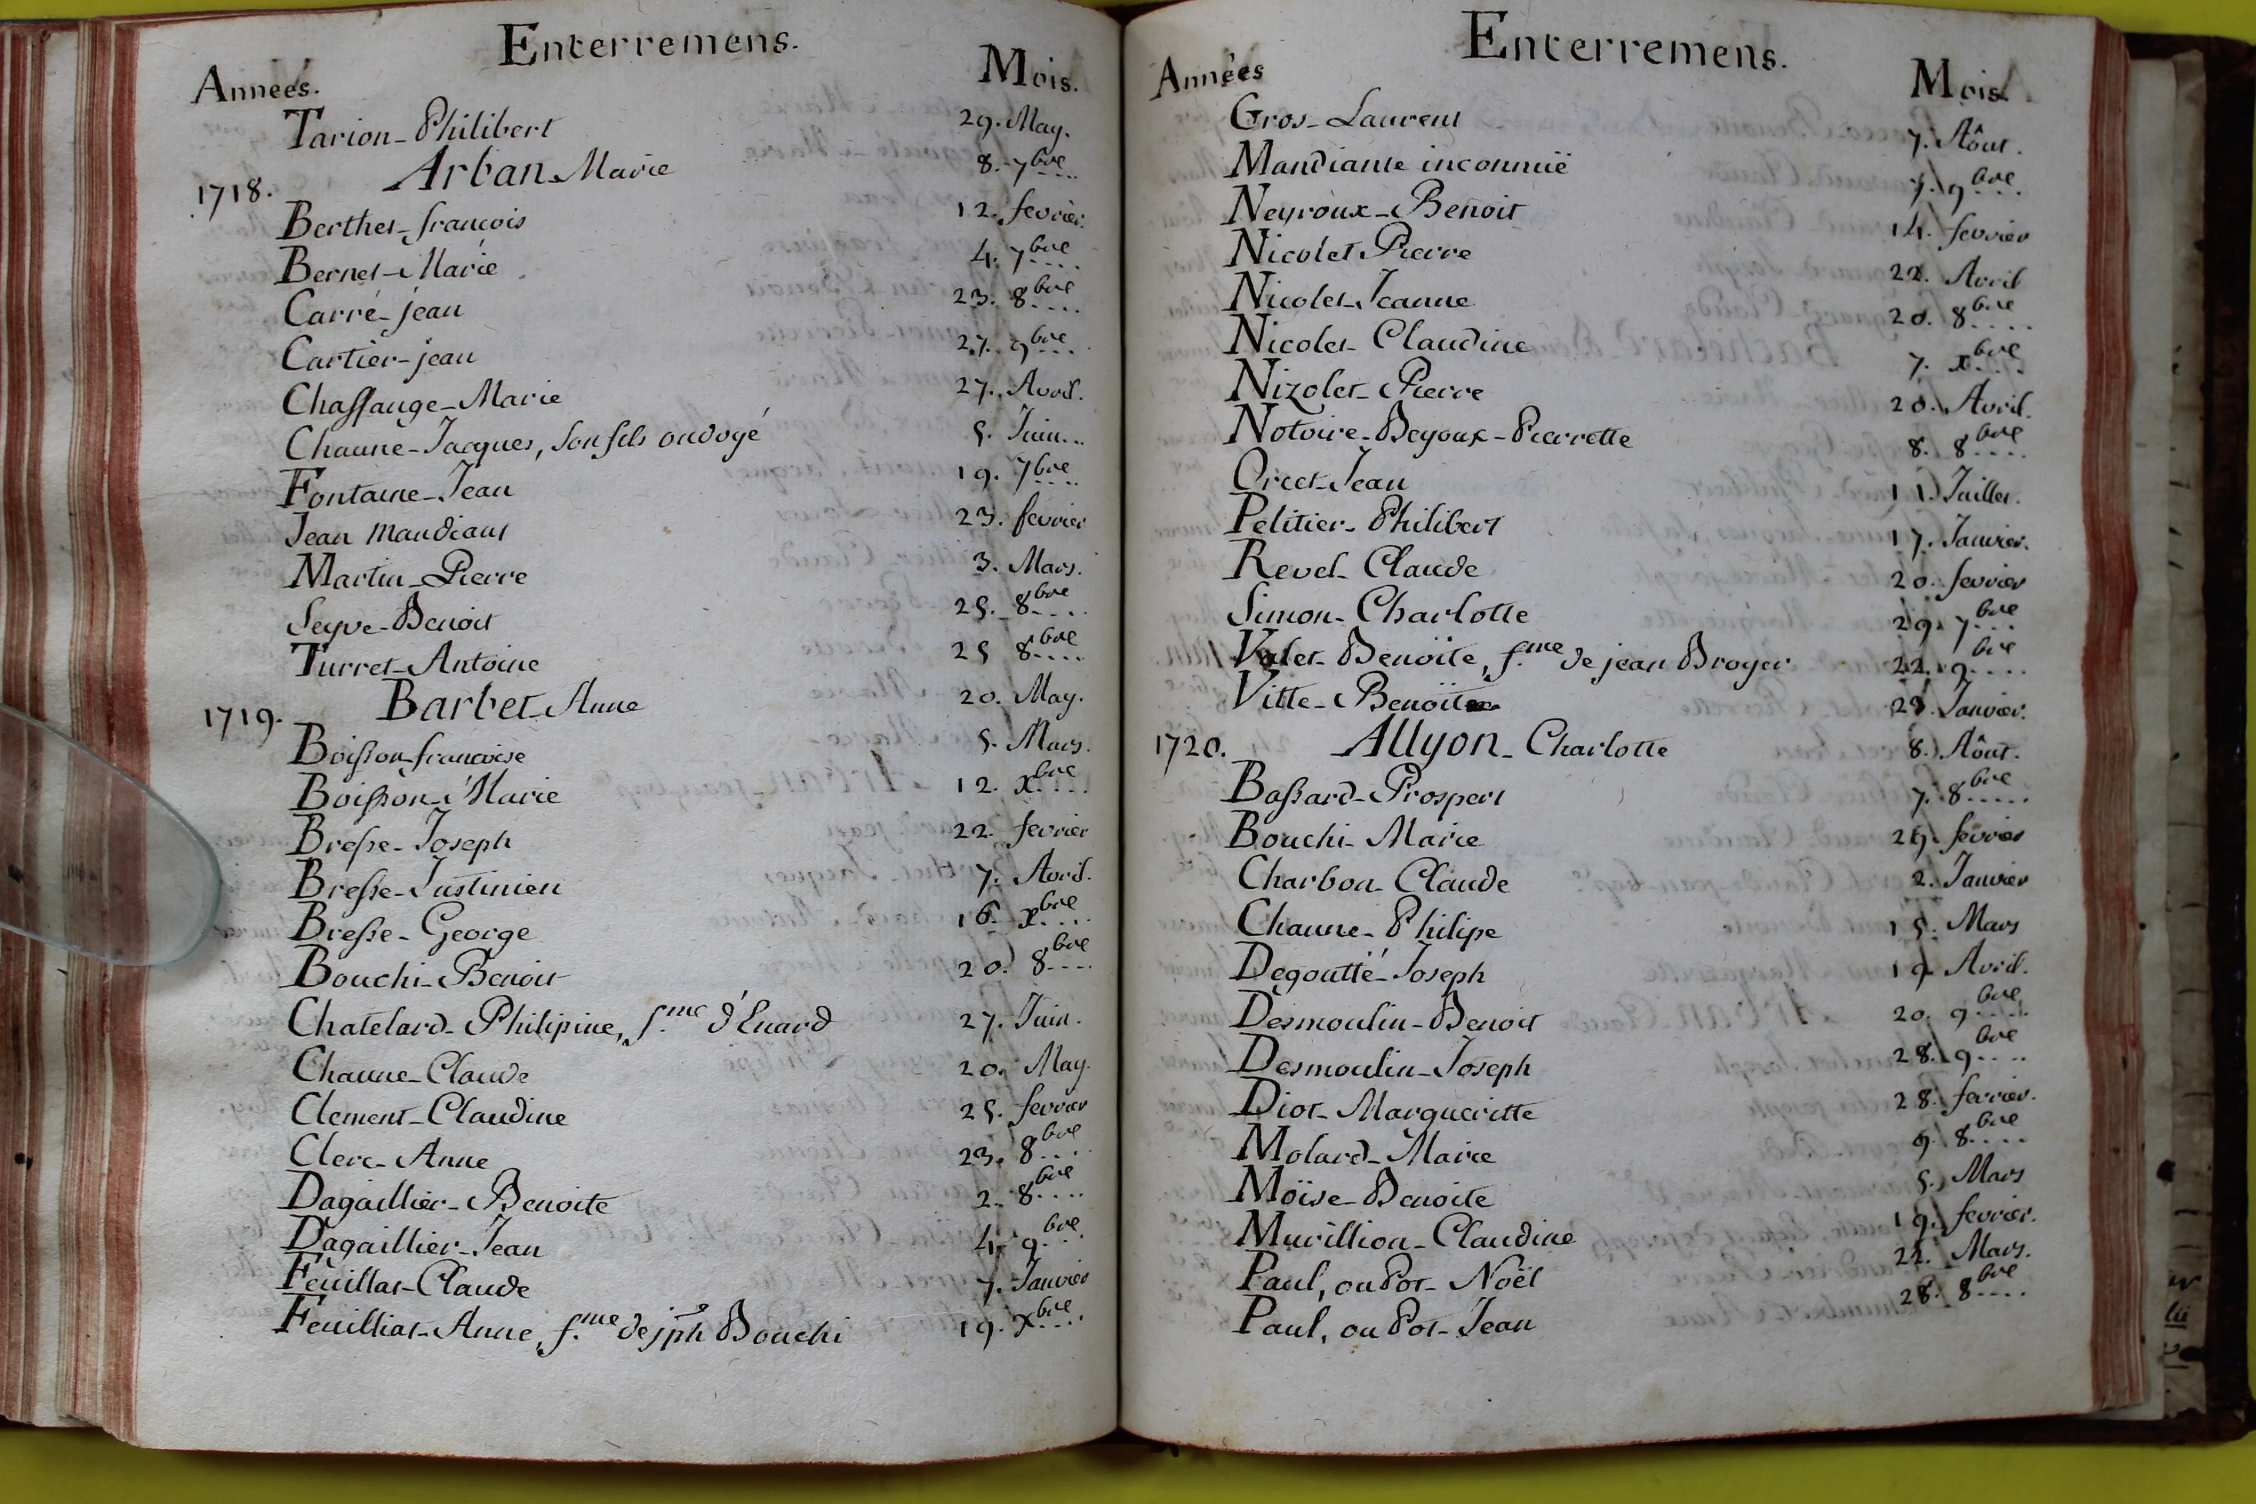 Enterremens.
Années. Mois.
Tarion - Philibert 29. May.
1718. Arban - Marie 8. 7bre....
Berthet - francois 12. fevrier.
Bernet - Marie 4. 7bre....
Carré - jean 23. 8bre....
Cartier - jean 27. 9bre....
Chassange - Marie 27. Avril.
Chaune - Jacques, son fils ondoyé 5. Juin...
Fontaine - Jean 19. 7bre....
Jean mandiant 23. fevrier
Martin - Pierre 3. Mars.
Seyve - Benoit 25. 8bre....
Turret - Antoine 25 8bre....
1719. Barbet - Anne 20. May.
Boisson - francoise 5. Mars.
Boisson - Marie 12. xbre....
Bresse - Joseph 22. fevrier
Bresse - Justinien 7. Avril.
Bresse - George 16. xbre....
Bouchi - Benoit 20. 8bre....
Chatelard - Philipine, f.me d'Enard 27. Juin.
Chaune - Claude 20. May.
Clement - Claudine 25. fevrier
Clerc - Anne 23. 8bre....
Dagaillier - Benoite 2. 8bre....
Dagaillier - Jean 4. 9bre...
Feuillat - Claude 7. Janvier
Feuilliat - Anne, f.me de jph Bouchi 19. xbre....
Enterremens.
Années Mois
Gros - Laurent 7. Aôut.
Mandiante inconnuë 7. 9bre....
Neyroux - Benoit 14. fevrier
Nicolet Pierre 22. Avril
Nicolet - Jeanne 20. 8bre....
Nicolet - Claudine 7. xbre....
Nizolet - Pierre 20. Avril.
Notoire - Beyoux - Pierrette 8. 8bre....
Orcet - Jean 11. Juillet.
Pelitier - Philibert 17. Janvier.
Revel - Claude 20. fevrier
Simon - Charlotte 29. 7bre...
Valet - Benoïte, f.me de jean Broyer 22. 9bre....
Vitte - Benoït 29. Janvier.
1720. Allyon - Charlotte 8. Aôut.
Bassard - Prospert 7. 8bre.....
Bouchi - Marie 29. fevrier
Charbon - Claude 2. Janvier
Chaune - Philipe 15. Mars
Degoutté - Joseph 19 Avril.
Desmoulin - Benoit 20. 9bre.....
Desmoulin - Joseph 28. 9bre....
Diot - Margueritte 28. fevrier.
Molard - Marie 9. 8bre....
Moïse - Benoite 5. Mars
Murillion - Claudine 19. fevrier.
Paul, ou Pot - Noël 22. Mars.
Paul, ou Pot - Jean 28. 8bre....